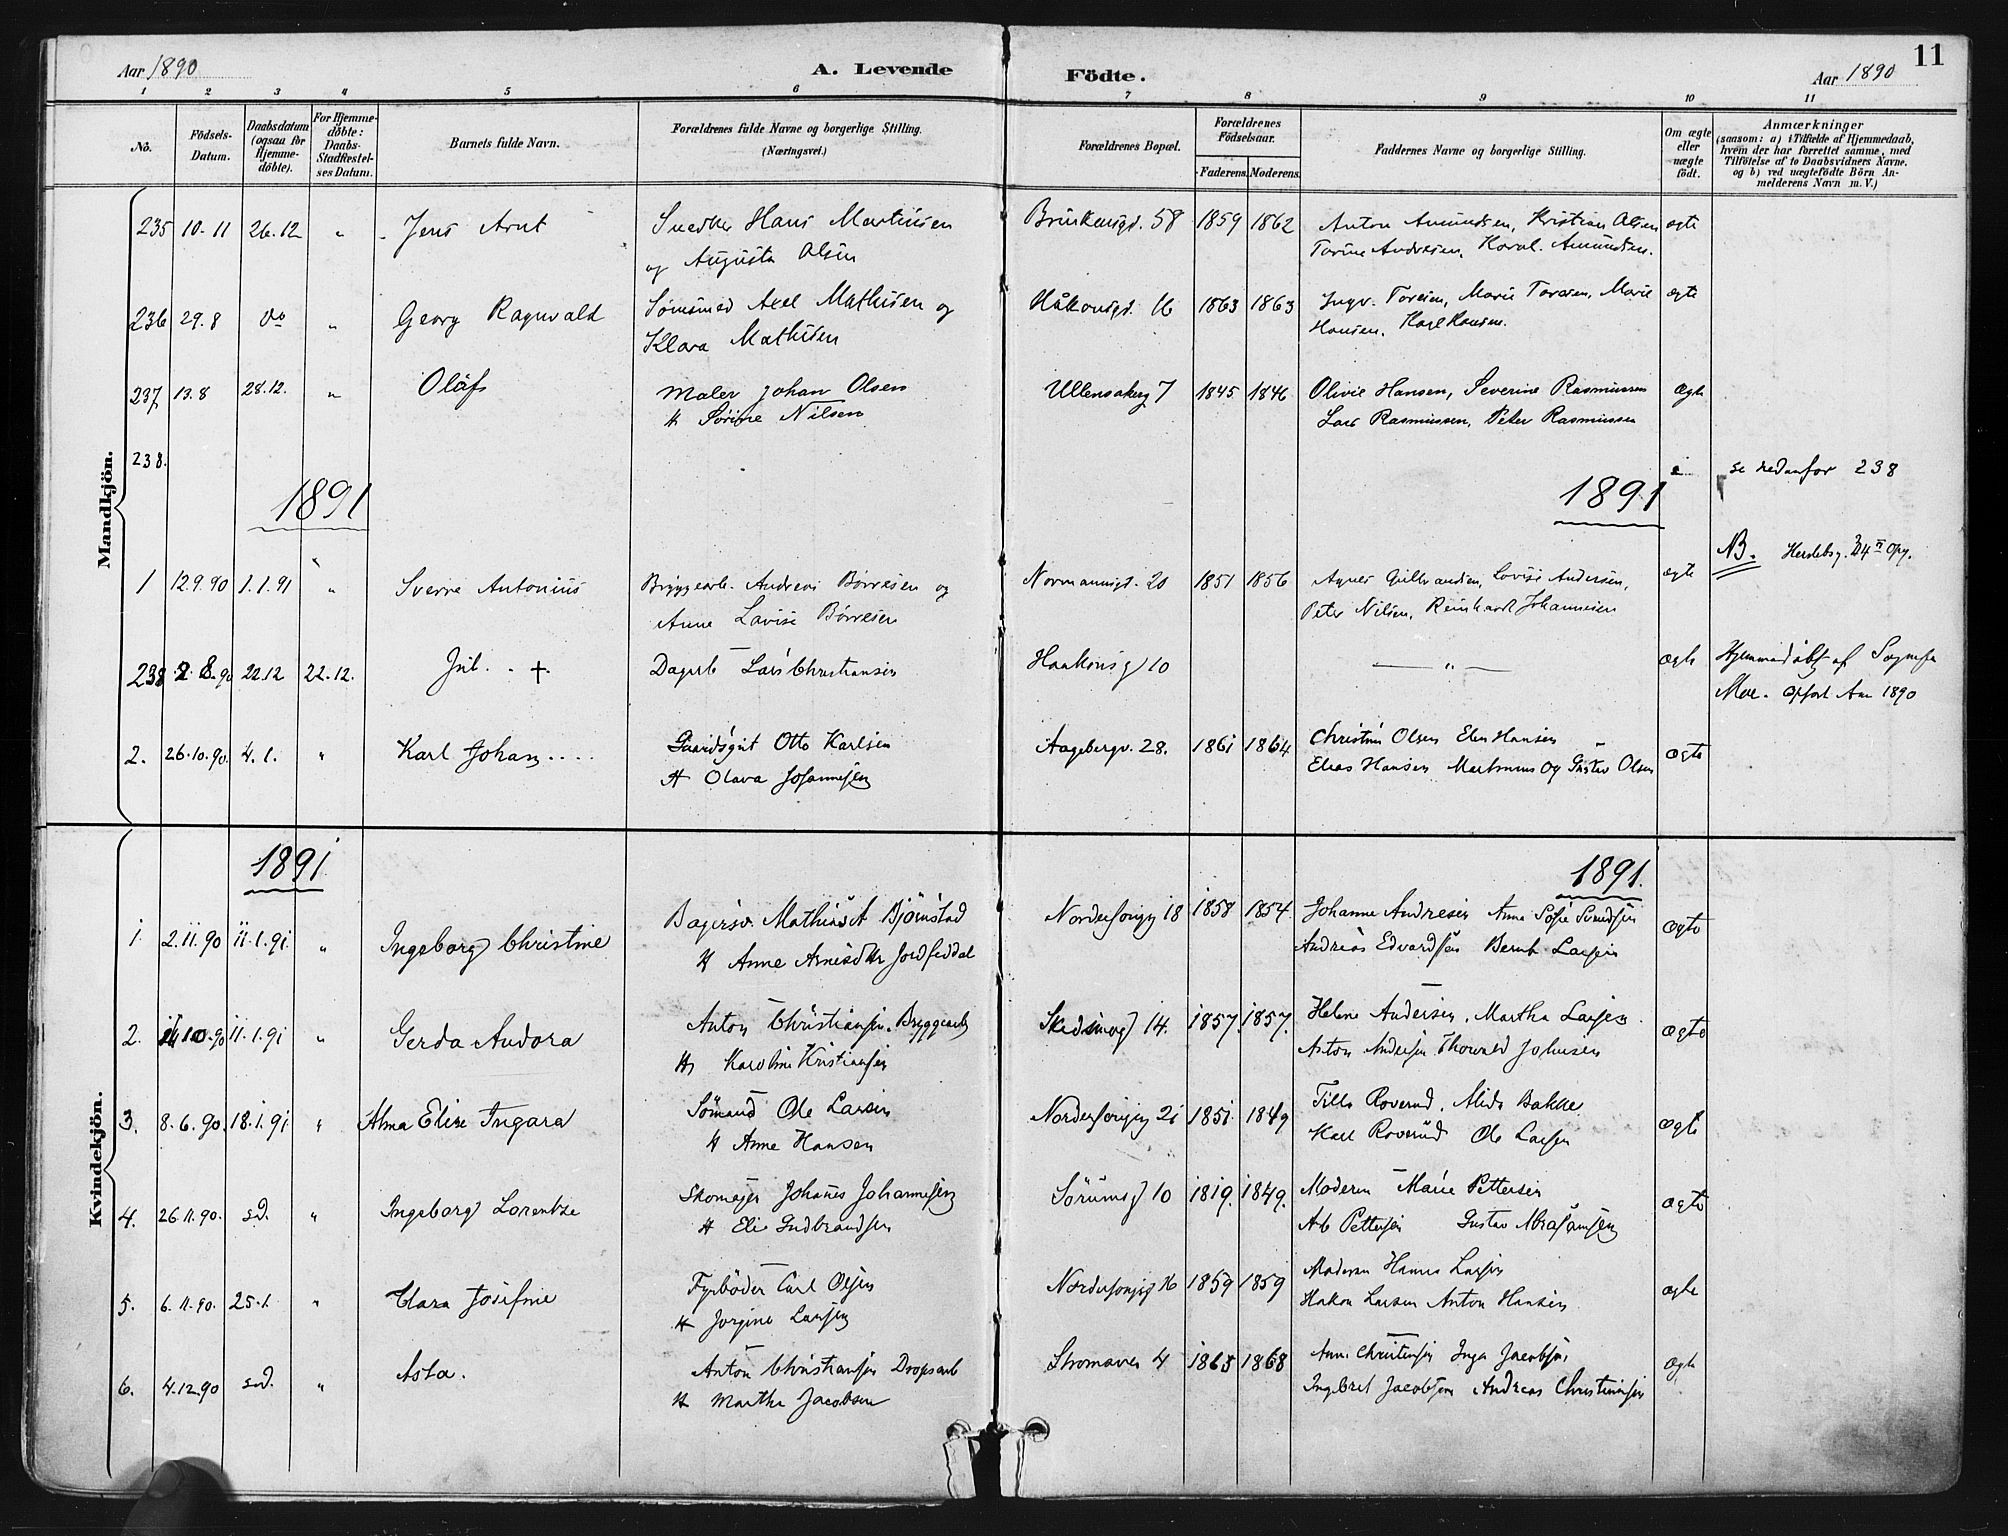 11
Aar 1890
A. Levende Födte.
Aar 1890
1 2 3 4 5 6 7 8 9 10 11
No.
Födsels-Datum.
Daabsdatum (ogsaa for Hjemme-döbte).
For Hjemme-döbte: Daabs-Stadfæstel-ses Datum.
Barnets fulde Navn.
Forældrenes fulde Navne og borgerlige Stilling. (Næringsvei.)
Forældrenes Bopæl.
Forældrenes Födselsaar.
Faderens. Moderens.
Faddernes Navne og borgerlige Stilling.
Om ægte eller uægte födt.
Anmærkninger
(saasom: a) i Tilfælde af Hjemmedaab, hvem der har forrettet samme, med Tilföielse af to Daabsvidners Navne. og b) ved uægtefödte Börn An-melderens Navn m. V.)
Mandkjön.
235 10-11 26.12 " Jens Arnt Snedker Hans Martinsen 58 1859 1862 Anton Amundsen, Kristian Olsen ægte
og Augusta Olsen Torine Andresen, Amundsen.
236 29.8 do " Georg Ragnvald Axel Mathisen og Håkonsgd. 16 1863 1863 Ingv. Toresen, Marie Toresen, Marie ægte
Klara Mathisen Hansen, Karl Hansen.
237 13.8 28.12. " Olaf Maler Johan Olsen Ullensakerg 7 1845 1846 Olivie Hansen, Severine Rasmussen Ægte
Nilsen Lars Rasmussen, Peter Rasmussen
238. se nedenfor 238
1891 1891
NB. Herslebsg.
1 12.9.90 1.1.91 " Sverre Antonius Bryggearb. Andreas Börresen og Normannsgd. 20 1851 1856 Agnes Lovise Andersen, ægte
Anne Lovise Börresen Peter Nilsen, Reinhardt Johannesen
238 2.8.90 22.12 22.12. Jul. + Dagarb Lars Christiansen Haakonsg 10 " ægte Hjemmedöbt af Sognepr
Moe. opfört Aar 1890
2. 26.10.90. 4.1. " Karl Johan.... Gaardsgut Otto Karlsen Aagebergv. 28. 1861 1864 Olsen Elen Hansen ægte
& Olava Johannesen Elias Hansen og Gustav Olsen
Kvindekjön.
1891 1891.
1. 2.11.90 11.1.91 " Ingeborg Christine Bagersv. Björnstad 18 1858 1854. Johanne Andresen Anna Sofie Svendsen ægte
& Anne Andreas Edvardsen Bernt Larsen
2. 10.90 11.1.91 " Gerda Andora Anton Christiansen. Bryggearb Skedsmog 14. 1857. 1857. Helene Andersen. Martha Larsen ægte
& Karoline Kristiansen Anton Andersen Thorvald Johnsen
3. 8.6.90. 18.1.91 " Alma Elise Ingara Sömand Ole Larsen 21 1851. 1849 Roverud. Bakke ægte
& Anne Hansen Karl Roverud Ole Larsen
4. 26.11.90. sd. " Ingeborg Lorentze Skomager Johannesen Sörumsg 10 1819. 1849. Moderen Marie Pettersen ægte
& Elie Gudbrandsen Pettersen Gustav Abrahamsen
5. 6.11.90. 25.1. " Clara Josefine Fyrböder Carl Olsen 16 1859 1859 Moderen Hanna Larsen ægte
& Jorgine Larsen Hakon Larsen Anton Hansen
6. 4.12.90 sd. " Asta. Anton Christiansen 4 1865 1868 Christensen Inga Jacobsen ægte
& Martha Jacobsen Ingebret Jacobsen Andreas Christiansen